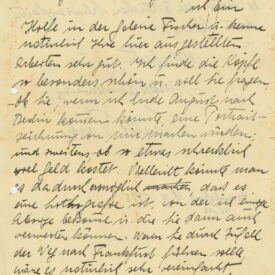 ich bin
Hilfe in der galerie Fischer u. kenne
natürlich Ihre hier ausgestellten
arbeiten sehr gut. Ich finde die Köpfe
so besonders schön u. will Sie fragen
ob Sie, wenn ich Ende August nach
Berlin kommen könnte, eine Portrait-
zeichnung von mir machen würden;
und zweitens ob so etwas schrecklich
viel geld kostet. Vielleicht könnte man
es dadurch ermöglich dass es
eine ist, von der ich einige
abzüge bekäme u. die Sie dann auch
verwerten können. Wenn Sie durch Zufall
der Weg nach Frankfurt führen sollte
wäre es natürlich sehr vereinfacht